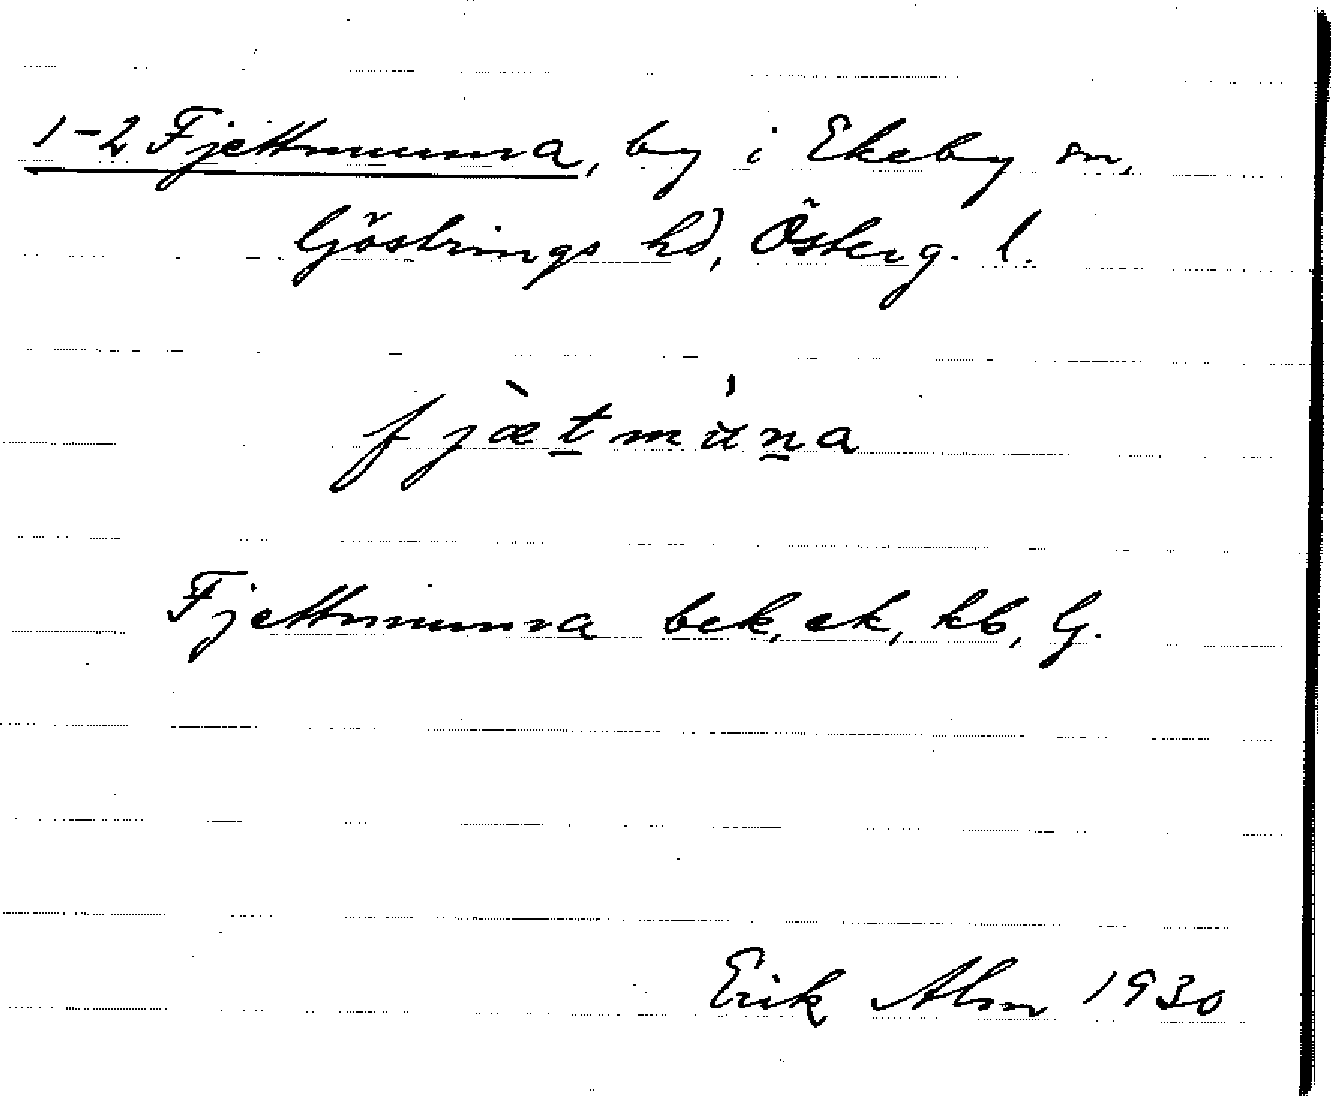 1-2 Fjettmunna, by i Ekeby sn,
Göstrings hd, Österg. l.
fjæ̀tmŭ̍na
Fjettmunna bek, ek, kb, G.
Erik Alm 1930